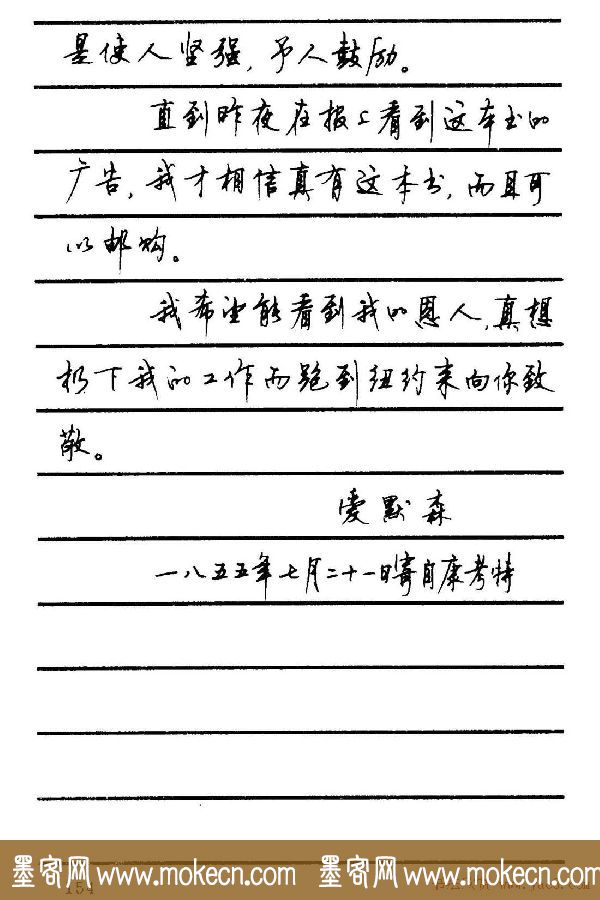 是使人坚强，予人鼓励。
直到昨夜在报上看到这本书的
广告，我才相信真有这本书，而且可
以邮购。
我希望能看到我的恩人，真想
扔下我的工作而跑到纽约来向你致
敬。
爱默森
一八五五年七月二十一日寄自康考特
墨客网 www.mokecn.com 墨客网 www.mokecn.com
154